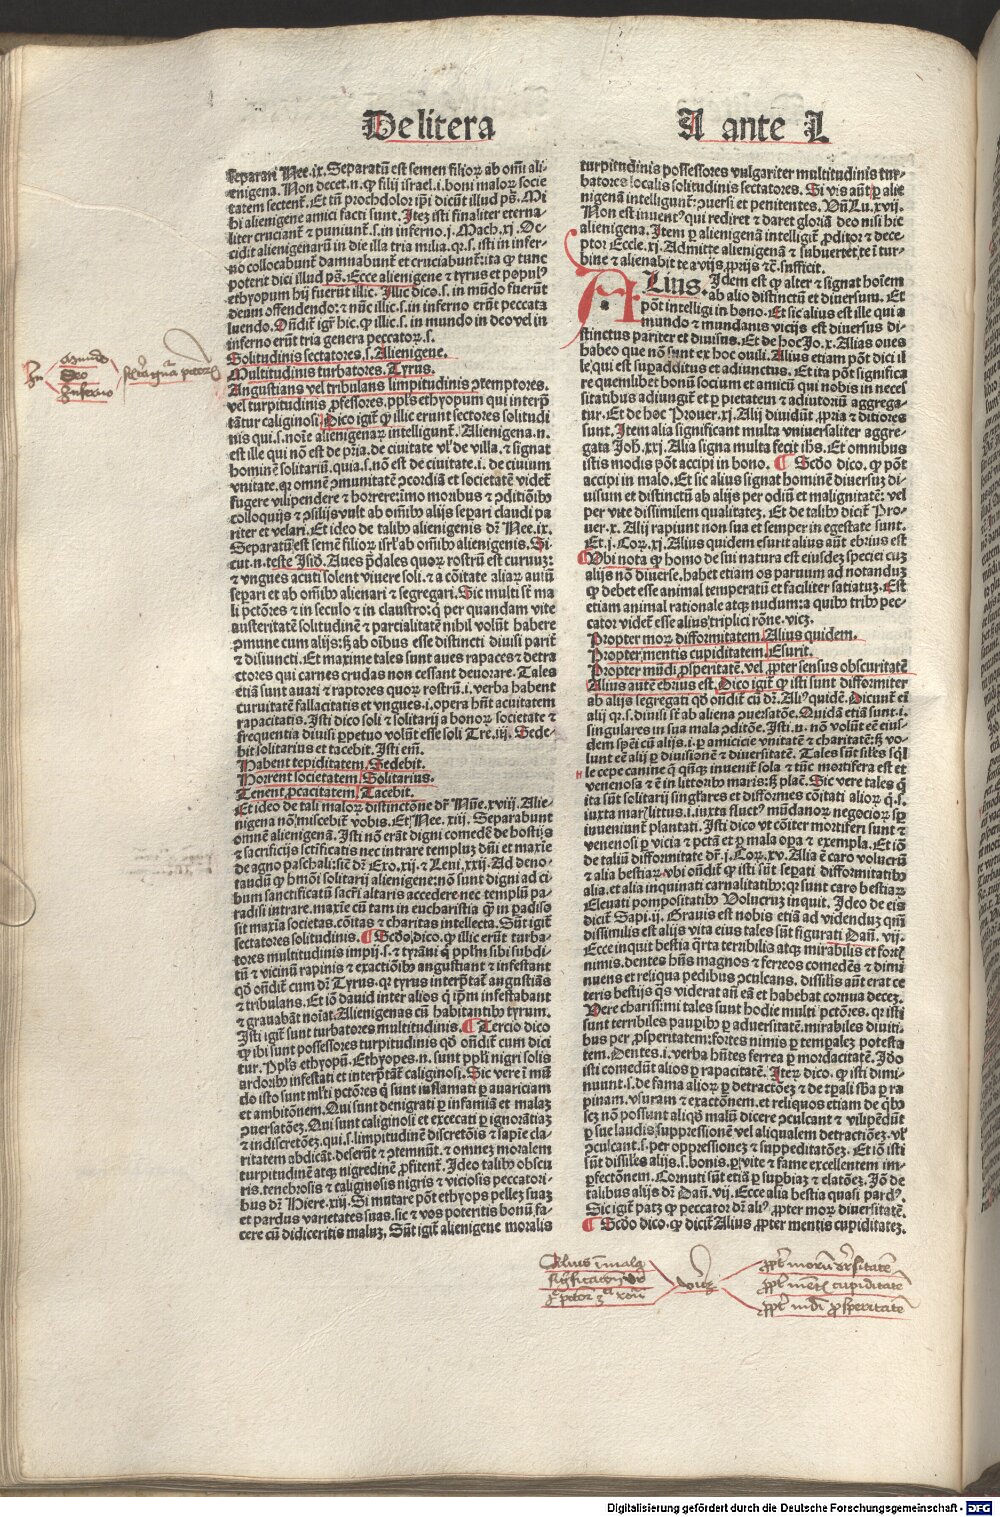 De litera
A ante L
separari Nee.ix. Separatū est semen filioꝝ ab om̄i ali-
enigena. Non decet.n.ꝙ filij israel.i.boni maloꝝ socie
tatem sectent̄. Et tn̄ prochdolor ip̄i dicūt illud ps̄. Mi
hi alienigene amici facti sunt. Itez isti finaliter eterna-
liter cruciant̄ ⁊ puniunt̄.s.in inferno.j.Mach.xj. Oc-
cidit alienigenarū in die illa tria milia.q.s.isti in infer-
no collocabunt̄ damnabunt̄ et cruciabunt̄:ita ꝙ tunc
poterit dici illud ps̄. Ecce alienigene ⁊ tyrus et popul⁹
ethyopum hij fuerūt illic. Illic dico.s.in mūdo fuerūt
deum offendendo: ⁊ nūc illic.s.in inferno erūt peccata
luendo. Ondit̄ igr̄ hic.ꝙ illic.s.in mundo in deo vel in
inferno erūt tria genera peccatoꝝ.s.
Solitudinis sectatores.s. Alienigene.
Multitudinis turbatores. Tyrus.
Angustians vel tribulans limpitudinis ꝯtemptores.
vel turpitudinis ꝓfessores.ppls ethyopum qui interp̄
tātur caliginosi Dico igit̄ ꝙ illic erunt sectores solitudi
nis qui.s.noīe alienigenaꝝ intelligunt̄. Alienigena.n.
est ille qui nō est de p̄ria.de ciuitate vl̓ de villa.⁊ signat
hominē solitariū.quia.s.nō est de ciuitate.i.de ciuium
vnitate.qꝛ omnē ꝯmunitatē ꝯcordiā et societatē videt̄
fugere vilipendere ⁊ horrere:immo moribus ⁊ ꝯditiōibꝫ
colloquijs ⁊ ꝯsilijs vult ab om̄ibꝫ alijs separi claudi pa
riter et velari. Et ideo de talibꝫ alienigenis dr̄ Nee.ix.
Separatū est semē filioꝝ isrl̓ ab om̄ibꝫ alienigenis. Si
cut.n.teste Isid. Aues p̄dales quoꝝ rostrū est curuuz:
⁊ vngues acuti solent viuere soli.⁊ a cōitate aliaꝝ auiū
separi et ab om̄ibꝫ alienari ⁊ segregari. Sic multi st̄ ma
li pctōres ⁊ in seculo ⁊ in claustro:q̄ per quandam vite
austeritatē solitudinē ⁊ parcialitatē nihil volūt habere
ꝯmune cum alijs:ꝫ ab oībus esse distincti diuisi parit̄
⁊ disiuncti. Et maxime tales sunt aues rapaces ⁊ detra
ctores qui carnes crudas non cessant deuorare. Tales
etiā sunt auari ⁊ raptores quoꝝ rostrū.i.verba habent
curuitatē fallacitatis et vngues.i.opera hn̄t acuitatem
rapacitatis. Isti dico soli ⁊ solitarij a bonoꝝ societate ⁊
frequentia diuisi ꝑpetuo volūt esse soli Tre.iij. Sede-
bit solitarius et tacebit. Isti em̄.
Habent tepiditatem. Sedebit.
Horrent societatem Solitarius.
Tenent ꝓcacitatem Tacebit.
Et ideo de tali maloꝝ distinctōne dr̄ Nūe.xviii. Alie-
nigena nō miscebit̄ vobis. Et Nee.xiij. Separabunt
omnē alienigenā. Isti nō erāt digni comedē de hostijs
⁊ sacrificijs sctificatis nec intrare templuz dn̄i et maxie
de agno paschali:sicut dr̄ Exo.xij.⁊ Leui.xxij. Ad deno-
tandū ꝙ hmōi solitarij alienigene:nō sunt digni ad ci
bum sanctificatū sacri altaris accedere nec templū pa-
radisi intrare.maxīe cū tam in eucharistia ꝙ in ꝑadiso
sit maxīa societas.cōitas ⁊ charitas intellecta. Sūt igit̄
sectatores solitudinis. ¶ Scdo dico.ꝙ illic erūt turba-
tores multitudinis impij.s.⁊ tyrāni q̄ pplm sibi subdi-
tū ⁊ vicinū rapinis ⁊ exactiōibꝫ angustiant ⁊ infestant
qd̄ ondit̄ cum dr̄ Tyrus.qꝛ tyrus interp̄tat̄ angustiās
⁊ tribulans. Et iō dauid inter alios q̄ ip̄m infestabant
⁊ grauabāt noīat. Alienigenas cū habitantibꝫ tyrum.
Isti igit̄ sunt turbatores multitudinis. ¶ Tercio dico
ꝙ ibi sunt possessores turpitudinis qd̄ ondit̄ cum dici
tur. Ppls ethyopū. Ethyopes.n.sunt ppli nigri solis
ardoribꝫ infestati et interp̄tāt̄ caliginosi. Sic vere i mū
do isto sunt ml̓ti pctōres q̄ sunt inflamati ꝑ auariciam
et ambitōnem. Qui sunt denigrati ꝑ infamiā et malaz
ꝯuersatōez. Qui sunt caliginosi et excecati ꝑ ignorātiaz
⁊ indiscretōez.qui.s.limpitudinē discretōis ⁊ sapie cla-
ritatem abdicāt.deserūt ⁊ ꝯtemnūt.⁊ omnez moralem
turpitudinē atqꝫ nigredinē ꝓfitent̄. Ideo talibꝫ obscu
ris.tenebrosis ⁊ caliginosis nigris ⁊ viciosis peccatori-
bus dr̄ Hiere.xiij. Si mutare pōt ethyops pellez suaz
et pardus varietates suas.sic ⁊ vos poteritis bonū fa-
cere cū didiceritis maluz. Sūt igit̄ alienigene moralis
turpitudinis possessores vulgariter multitudinis tur-
batores localis solitudinis sectatores. Si vis aūt ꝑ alie
nigenā intelligunt̄:ꝯuersi et penitentes. Vn̄ Lu.xvij.
Non est inuent⁹ qui rediret ⁊ daret gloriā deo nisi hic
alienigena. Item ꝑ alienigenā intelligit̄ ꝓditor ⁊ dece-
ptor Eccle.xj. Admitte alienigenā ⁊ subuertet te ī tur-
bine ⁊ alienabit te a vijs ꝓprijs ⁊c̄. sufficit.
ALius. Idem est ꝙ alter ⁊ signat hoīem
ab alio distinctū et diuersum. Et
pōt intelligi in bono. Et sic alius est ille qui a
mundo ⁊ mundanis vicijs est diuersus di-
stinctus pariter et diuisus. Et de hoc Jo.x. Alias oues
habeo que nō sunt ex hoc ouili. Alius etiam pōt dici il
le.qui est suꝑadditus et adiunctus. Et ita pōt significa
re quemlibet bonū socium et amicū qui nobis in neces
sitatibus adiungit̄ et ꝑ pietatem ⁊ adiutoriū aggrega-
tur. Et de hoc Prouer.xj. Alij diuidūt ꝓpria ⁊ ditiores
sunt. Item alia significant multa vniuersaliter aggre-
gata Joh.xxj. Alia signa multa fecit ihs. Et omnibus
istis modis pōt accipi in bono. ¶ Scdo dico.ꝙ pōt
accipi in malo. Et sic alius signat hominē diuersuz di-
uisum et distinctū ab alijs per odiū et malignitatē: vel
per vite dissimilem qualitatez. Et de talibꝫ dicit̄ Pro-
uer.x. Alij rapiunt non sua et semper in egestate sunt.
Et.j.Coꝝ.xj. Alius quidem esurit alius aūt ebrius est
Ubi nota ꝙ homo de sui natura est eiusdez speciei cuz
alijs nō diuerse.habet etiam os paruum ad notanduz
ꝙ debet esse animal temperatū et faciliter satiatuz. Est
etiam animal rationale atqꝫ nudum:a quibꝫ tribꝫ pec-
cator videt̄ esse alius triplici rōne.vicz.
Propter moꝝ difformitatem Alius quidem.
Propter mentis cupiditatem Esurit.
Propter mūdi ꝓsperitatē.vel ꝓpter sensus obscuritatē
Alius autē ebrius est. Dico igit̄ ꝙ isti sunt difformiter
ab alijs segregati qd̄ ondit̄ cū dr̄. Ali⁹ quidē. Dicunt̄ ei
alij qꝛ.s.diuisi st̄ ab aliena ꝯuersatōe. Quidā etiā sunt.i.
singulares in sua mala ꝯditōe. Isti.n.nō volūt eē eius-
dem sp̄ei cū alijs.i.ꝑ amicicie vnitatē ⁊ charitatē:ꝫ vo-
lunt eē alij ꝑ diuisionē ⁊ diuersitatē. Tales sūt siles sq̄l
le cepe canine q̄ qn̄qꝫ inuenit̄ sola ⁊ tūc mortifera est et
venenosa ⁊ ē in littoribꝫ maris:ꝫ plac̄. Sic vere tales q̄
ita sūt solitarij singl̓ares et difformes cōitati alioꝝ q̄.s.
iuxta mar̄ littus.i.iuxta fluct⁹ mūdanoꝝ negocioꝝ sꝑ
inueniunt̄ plantati. Isti dico vt cōiter mortiferi sunt ⁊
venenosi ꝑ vicia ⁊ pctā et ꝑ mala oꝑa ⁊ exempla. Et iō
de taliū difformitate dr̄.j.Coꝝ.xv. Alia ē caro volucrū
⁊ alia bestiaꝝ.vbi ondit̄ ꝙ isti sūt seꝑati difformitatibꝫ
alia.et alia inquinati carnalitatibꝫ:qꝛ sunt caro bestiaꝝ
Eleuati pompositatibꝫ Volucruz inquit. Ideo de eis
dicit̄ Sapi.ij. Grauis est nobis etiā ad videnduz qm̄
dissimilis est alijs vita eius tales sūt figurati Dan̄.vij.
Ecce inquit bestia q̄rta terribilis atqꝫ mirabilis et fortꝭ
nimis.dentes hn̄s magnos ⁊ ferreos comedēs ⁊ dimi
nuens et reliqua pedibus ꝯculcans.dissilis aūt erat ce
teris bestijs q̄s viderat an̄ eā et habebat cornua decez.
Uere charissimi tales sunt hodie multi pctōres.qꝛ isti
sunt terribiles pauꝑibꝫ ꝑ aduersitatē.mirabiles diuiti-
bus per ꝓsperitatem:fortes nimis ꝑ temꝑalez potesta
tem. Dentes.i.verba hn̄tes ferrea ꝑ mordacitatē. Ido
isti comedūt alios ꝑ rapacitatē. Itez dico.ꝙ isti dimi-
nuunt.s.de fama alioꝝ ꝑ detractōez ⁊ de tꝑali sb̄a ꝑ ra
pinam.vsuram ⁊ exactōnem.et reliquos etiam de qꝫbꝫ
scz nō possunt aliqd̄ malū dicere ꝯculcant ⁊ vilipēdūt
ꝑ sue laudis suppressionē vel aliqualem detractiōez.vl̓
ꝯculcant.s.per oppressionez ⁊ suppeditatōez. Et iō isti
sūt dissiles alijs.s.bonis.ꝑ vite ⁊ fame excellentem im-
ꝑfectōnem. Cornuti sūt etiā ꝑ suꝑbiaz ⁊ elatōez. Iō de
talibus alijs dr̄ Dan̄.vij. Ecce alia bestia quasi pard⁹.
Sic igit̄ patꝫ ꝙ peccator dr̄ ali⁹ ꝓpter moꝝ diuersitatē.
¶ Scdo dico.ꝙ dicit̄ Alius ꝓpter mentis cupiditatez.
Mundo
Deo
Inferno
Alius in mala
ꝓpt̄ moꝝ diu̓sitatē
ꝓpt̄ mētꝭ cupiditatē
ꝓpt̄ mūdi ꝓsperitatē
Digitalisierung gefördert durch die Deutsche Forschungsgemeinschaft - DFG